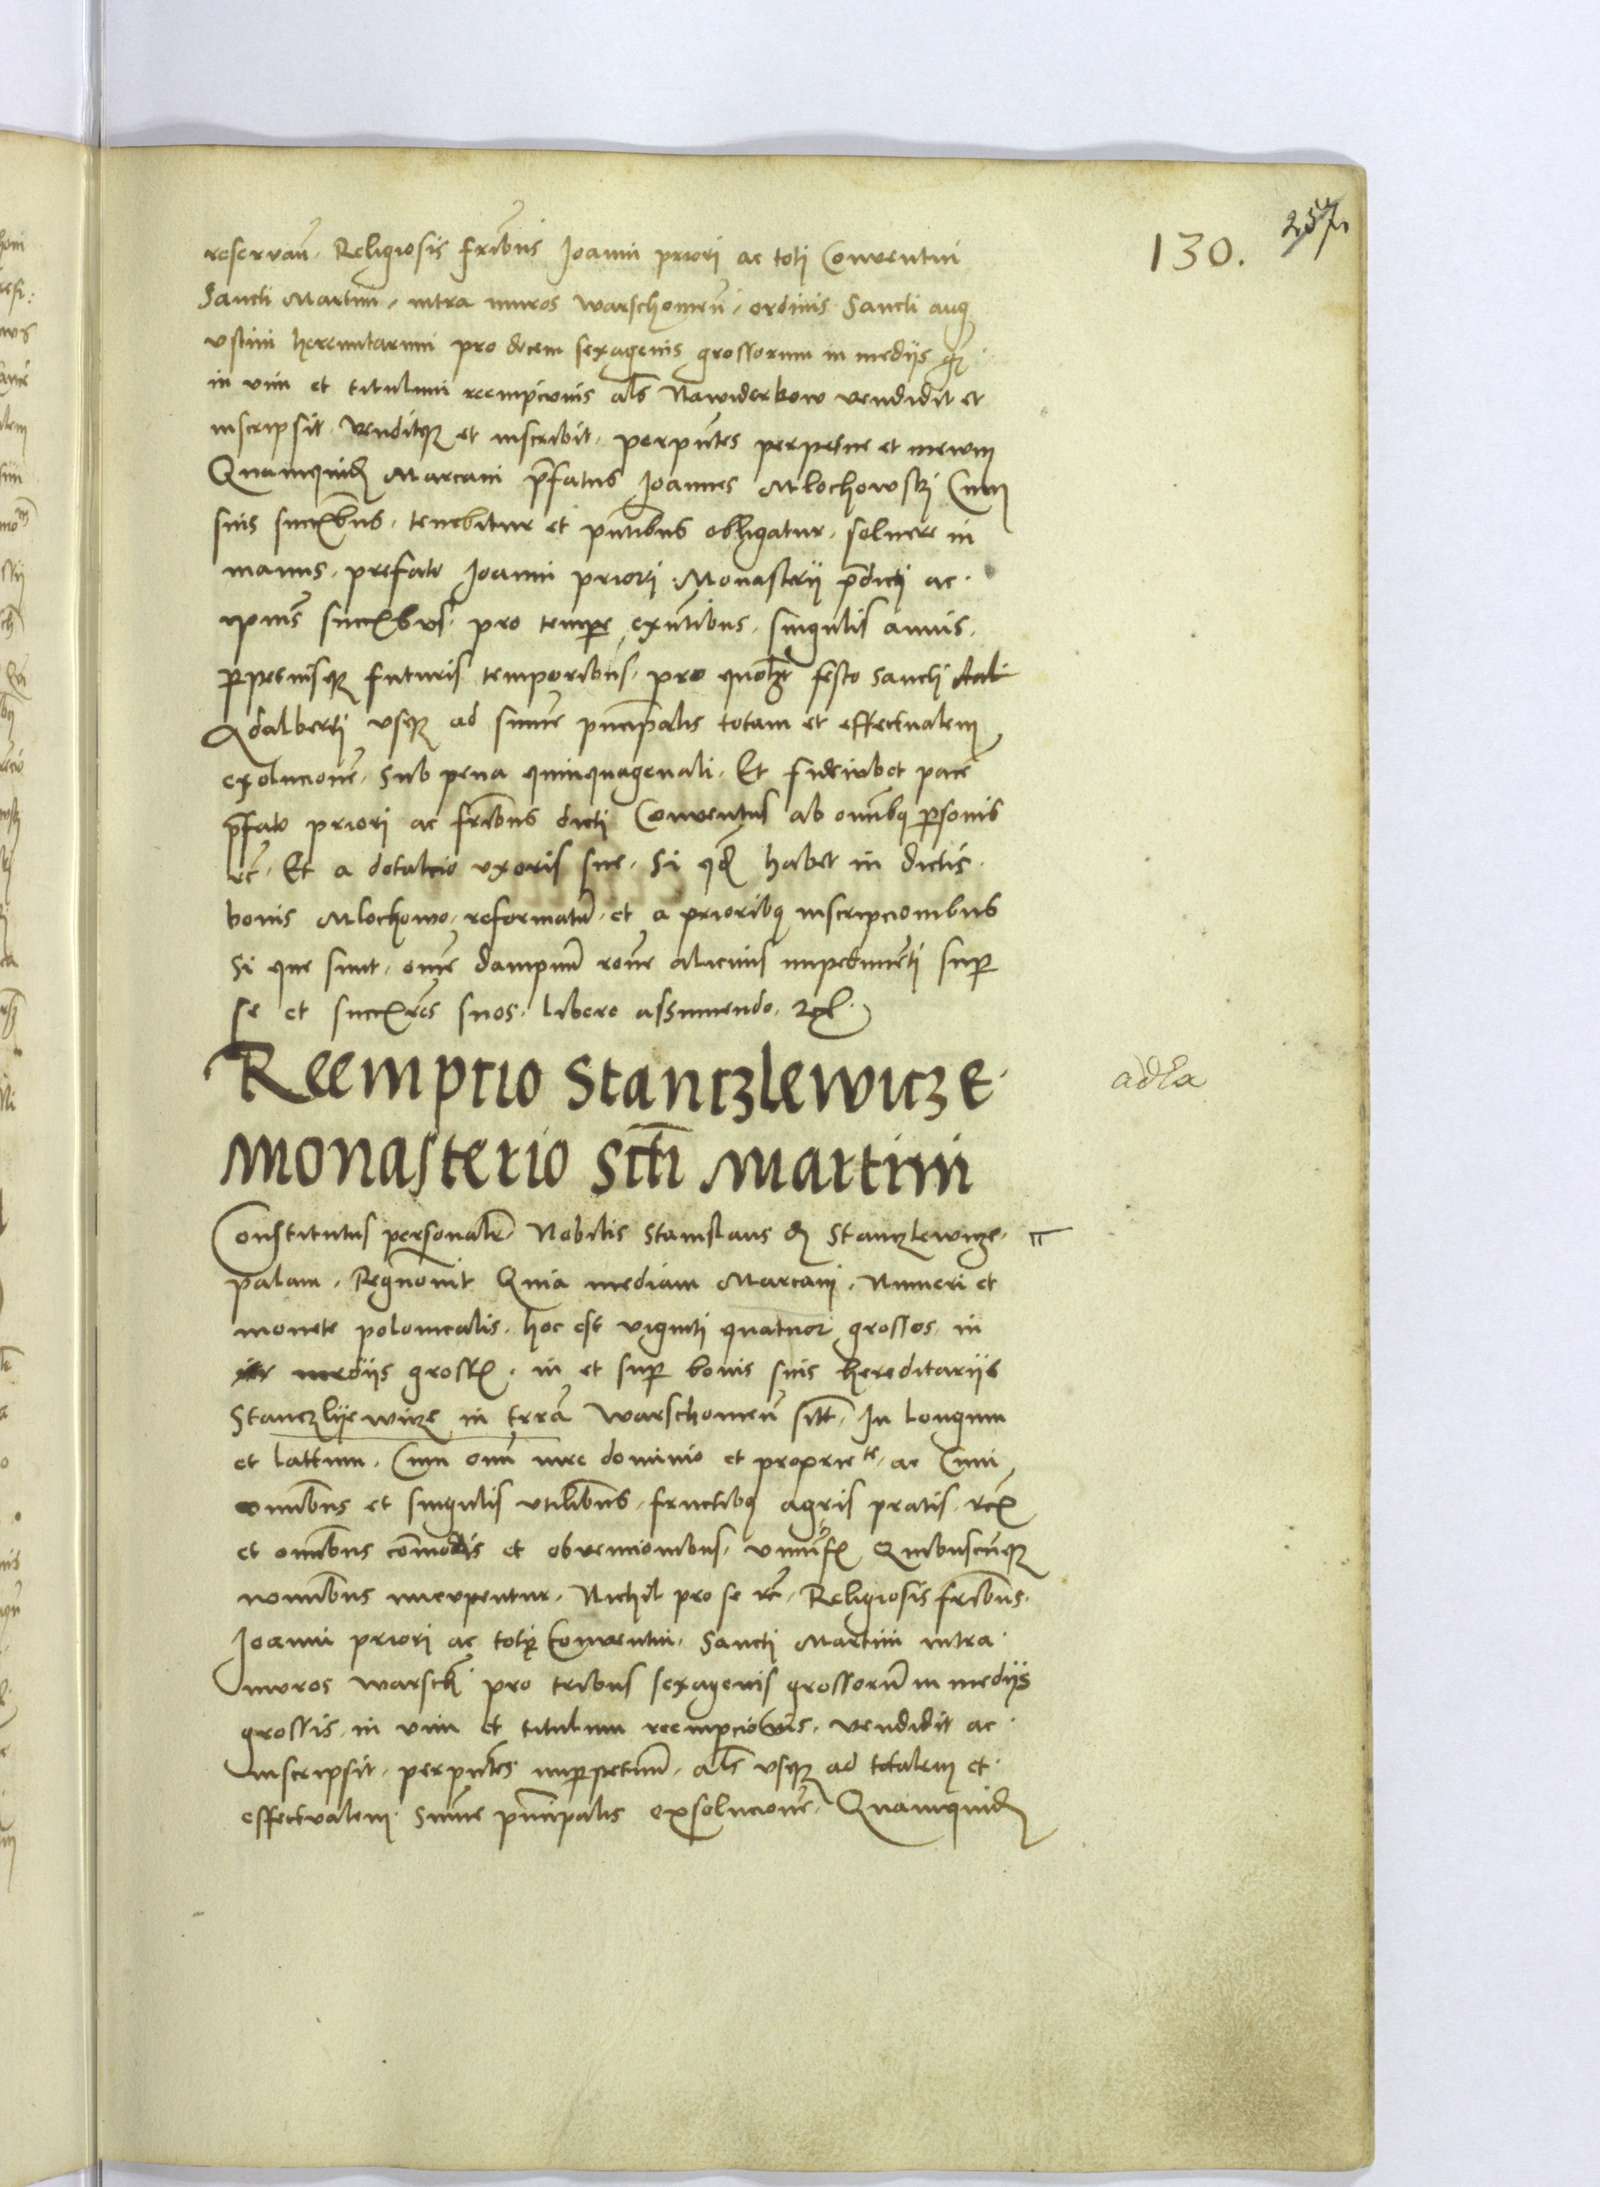 257
130.
reservan̄. Religiosis fr̄ibus Joanni priori ac toti Conventui
Sancti Martini, intra muros Warschovien̄, ordinis Sancti Aug
ustini heremitarum pro decem sexagenis grossorum in medijs
in vim et titulum reempcionis als Nawiderkow vendidit et
inscripsit venditque et inscribit, per pn̄tes perpetue et in ewm
Quamquid Marcam p̄fatus Joannes Mlochowski Cum
suis succ̄ribus, tenebitur et pn̄tibus obligatur, soluere in
manus, prefato Joanni priori Monasterij p̄dicti ac
ipius succ̄ribus pro tempore exn̄tibus, singulis annis,
perpetuisque futuris temporibus, pro quolt festo Sancti Aal
Adalberti usque ad sum̄e pn̄cipalis totam et effectualem
exolucionē, Sub pena quinquagenali, Et fideiubet pacē
p̄fato priori ac fr̄ibus dicti Conventus ab om̄ibq personis
etc̄, Et a dotalicio uxoris sue, Si qd habet in dictis
bonis Mlochowo, reformatū, et a prioribq inscripcionibus
Si que sunt, om̄e dampnū rōne alicuius impedimēti super
se et succ̄res suos, libere assumendo,
Reempcio Stanczlewicze
Monasterio Sc̄ti Martini
adla
Constitutus personalr̄ Nobilis Stanislaus de Stanczlewicze
palam, Regnovit Quia mediam Marcam, Numeri et
monete polonicalis, hoc est viginti quatuor grossos, in
medijs gross, in et super bonis suis hereditarijs
Stanczlyewicze in terrā Warschovien̄ sitt, In longum
et lattum, Cum om̄i iure dominio et proprie te, ac Cum
om̄ibus et singulis utilibus, fructibq agris pratis,
et om̄ibus com̄odis et obvencionibus, univs Quibuscūque
nomibus nuncupentur, Nichil pro se rē, Religiosis fr̄ibus
Joanni priori ac totj Conventui, Sancti Martini intra
muros Warsch pro tribus sexagenis grossorū in medijs
grossis, in vim et titulum reempcionis, vendidit ac
inscripsit, per pn̄tes imperpetuū, als usque ad totalem et
effectualem sum̄e pn̄cipalis exsolucionē, Quamquid